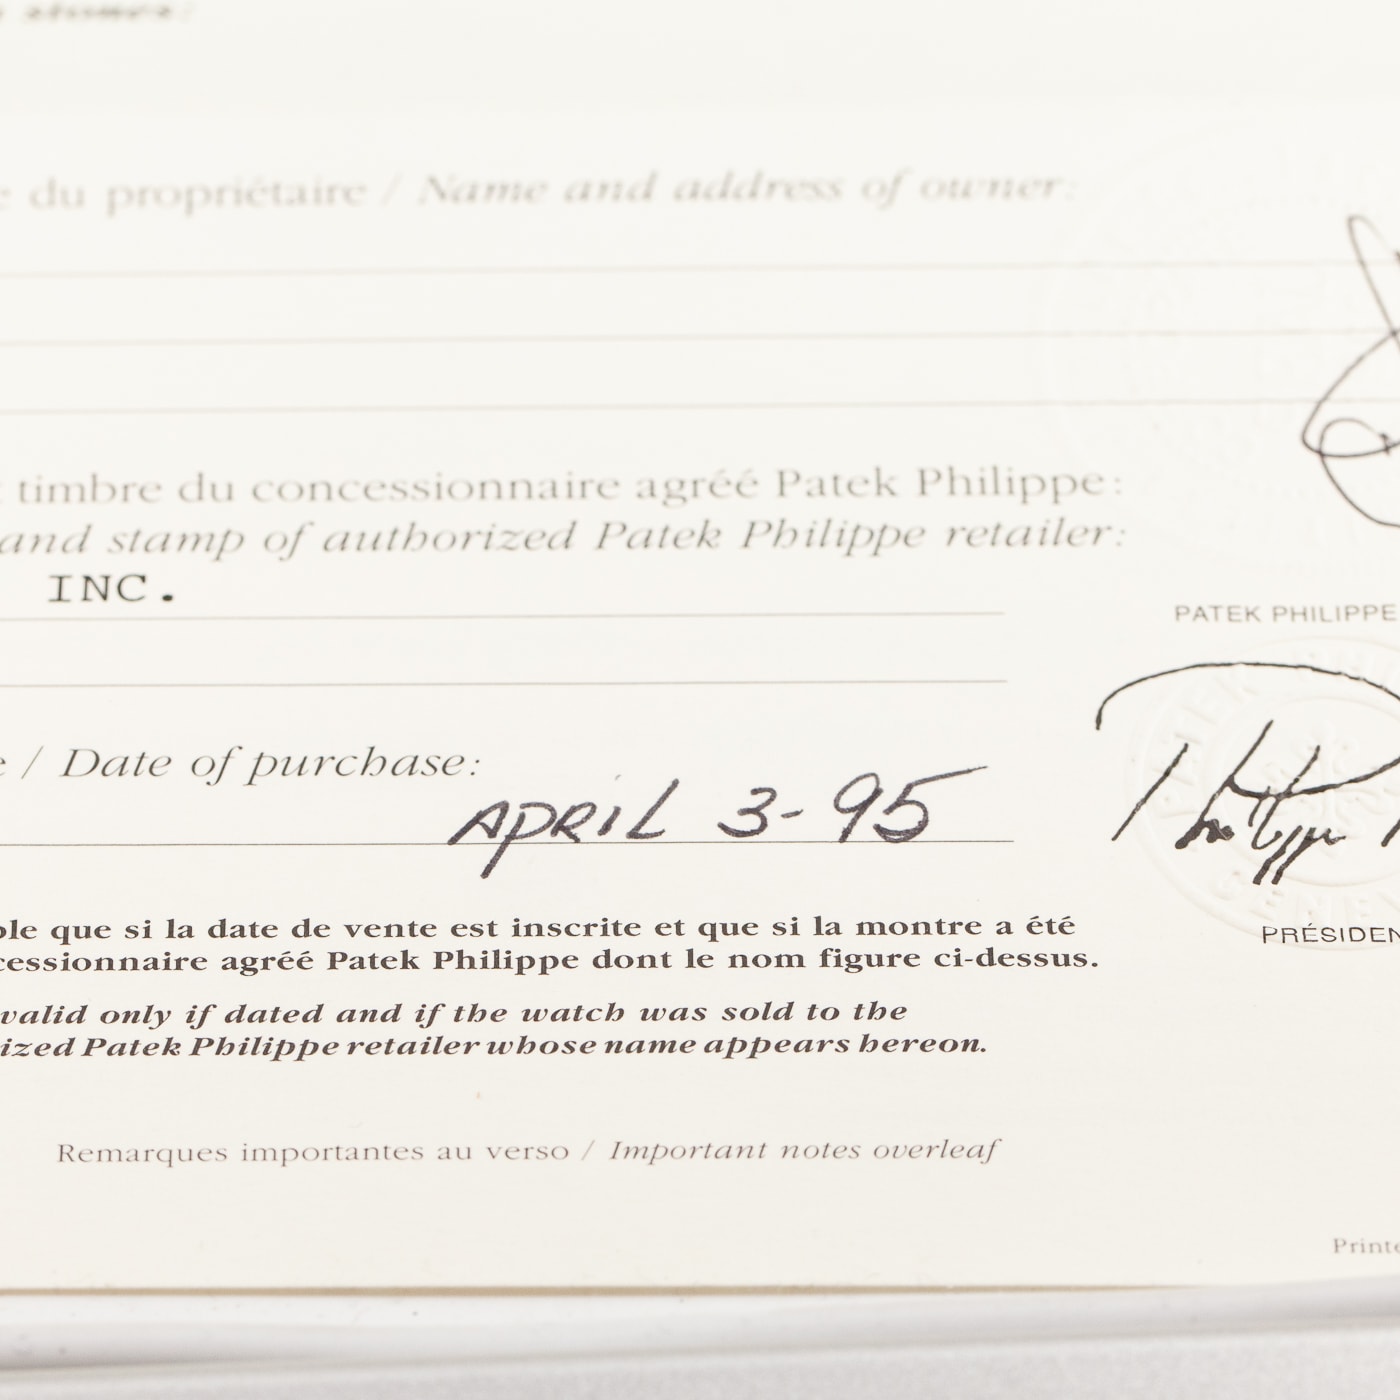 stones:
e du propriétaire / Name and address of owner:
t timbre du concessionnaire agréé Patek Philippe:
and stamp of authorized Patek Philippe retailer:
INC.
PATEK PHILIPPE
e / Date of purchase:
APRIL 3-95
PATEK PHILI
GENEV
PRÉSIDEN
ble que si la date de vente est inscrite et que si la montre a été
cessionnaire agréé Patek Philippe dont le nom figure ci-dessus.
valid only if dated and if the watch was sold to the
ized Patek Philippe retailer whose name appears hereon.
Remarques importantes au verso / Important notes overleaf
Printe